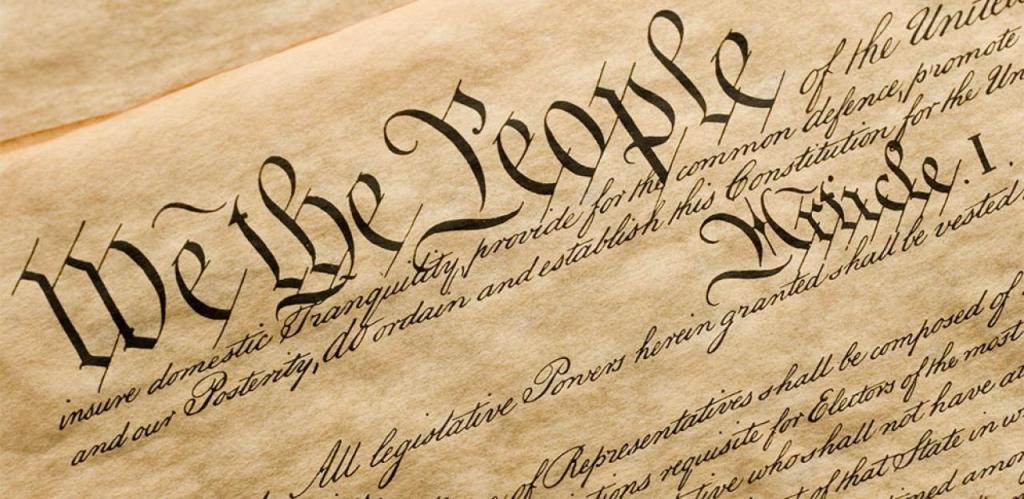 We the People of the United
insure domestic Tranquility, provide for the common defence, promote
and our Posterity, do ordain and establish this Constitution for the Un
Article. I.
All legislative Powers herein granted shall be vested
of Representatives shall be composed of
tions requisite for Electors of the most
tive who shall not have at
of that State in w
amon